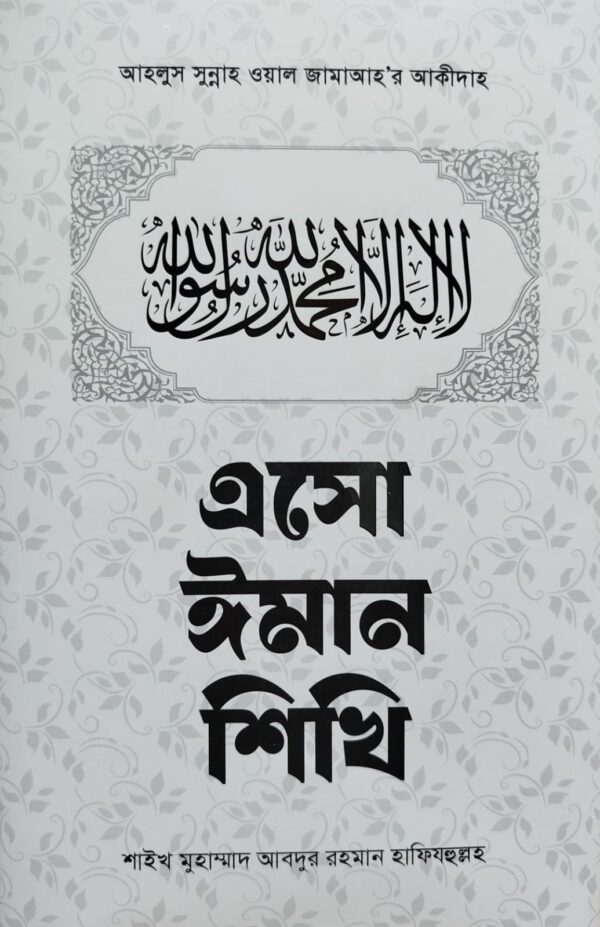 আহলুস সুন্নাহ ওয়াল জামাআহ'র আকীদাহ
لا إله إلا الله محمد رسول الله
এসো
ঈমান
শিখি
শাইখ মুহাম্মাদ আবদুর রহমান হাফিযহুল্লহ